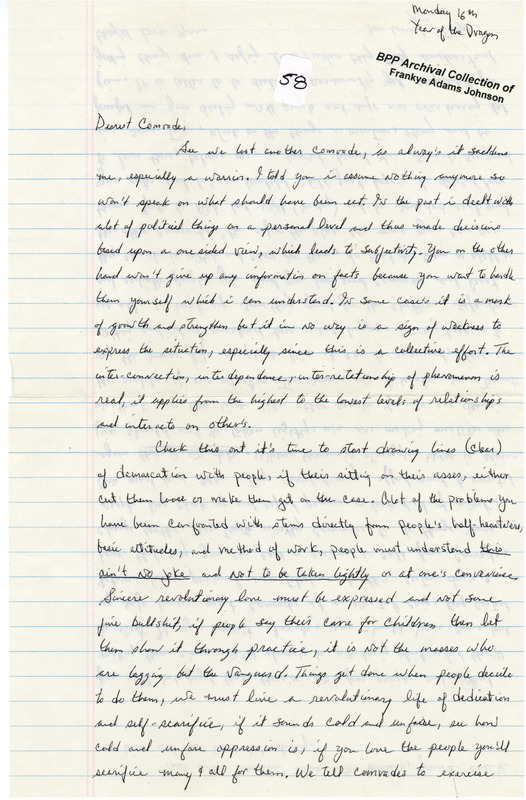 Monday 16th
Year of the Dragon
BPP Archival Collection of
Frankye Adams Johnson
58
Dearest Comrade,
See we lost another comrade, as always it saddens
me, especially a warrior. I told you i assume nothing anymore so
won't speak on what should have been ect. In the past i dealt with
alot of political things on a personal level and thus made decisions
based upon a one sided view, which leads to subjectivity. You on the other
hand won't give up any information on facts because you want to handle
them yourself which i can understand. In some case's it is a mark
of growth and strengthen but it in no way is a sign of weakness to
express the situation, especially since this is a collective effort. The
inter-connection, interdependance, inter-relationship of phenomenon is
real, it applies from the highest to the lowest levels of relationships
and interacts on other's.
Check this out it's time to start drawing lines (clear)
of demarcation with people, if their sitting on their asses, either
cut them loose or make them get on the case. Alot of the problems you
have been confronted with stems directly from people's half-heartedness,
basic attitudes, and method of work, people must understand this
ain't no joke and not to be taken lightly or at one's convenience.
Sincere revolutionary love must be expressed and not some
jive bullshit, if people say their care for children then let
them show it through practice, it is not the masses who
are lagging but the vanguard. Things get done when people decide
to do them, we must live a revolutionary life of dedication
and self-scarifice, if it sounds cold and unfaire, see how
cold and unfare oppression is, if you love the people you'll
sacrifice many & all for them. We tell comrades to exercise